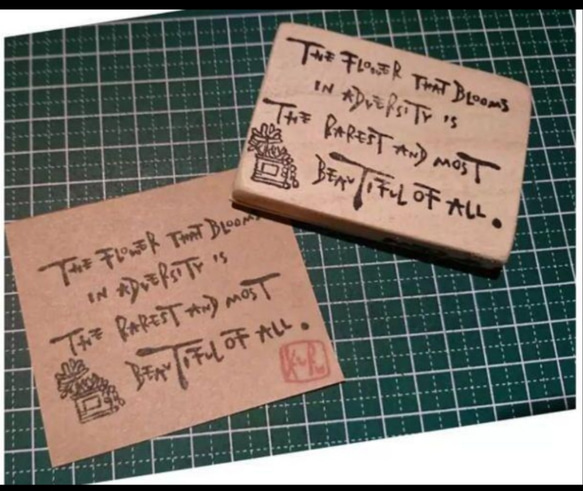 THE FLOWER THAT BLOOMS
IN ADVERSITY IS
THE RAREST AND MOST
BEAUTIFUL OF ALL.
THE FLOWER THAT BLOOMS
IN ADVERSITY IS
THE RAREST AND MOST
BEAUTIFUL OF ALL.